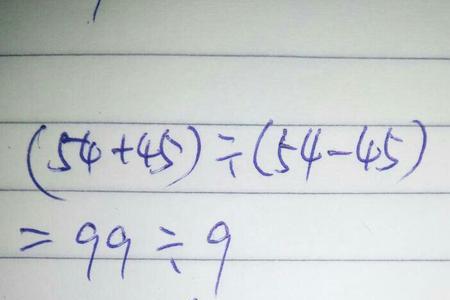 (54+45)÷(54-45)
=99÷9